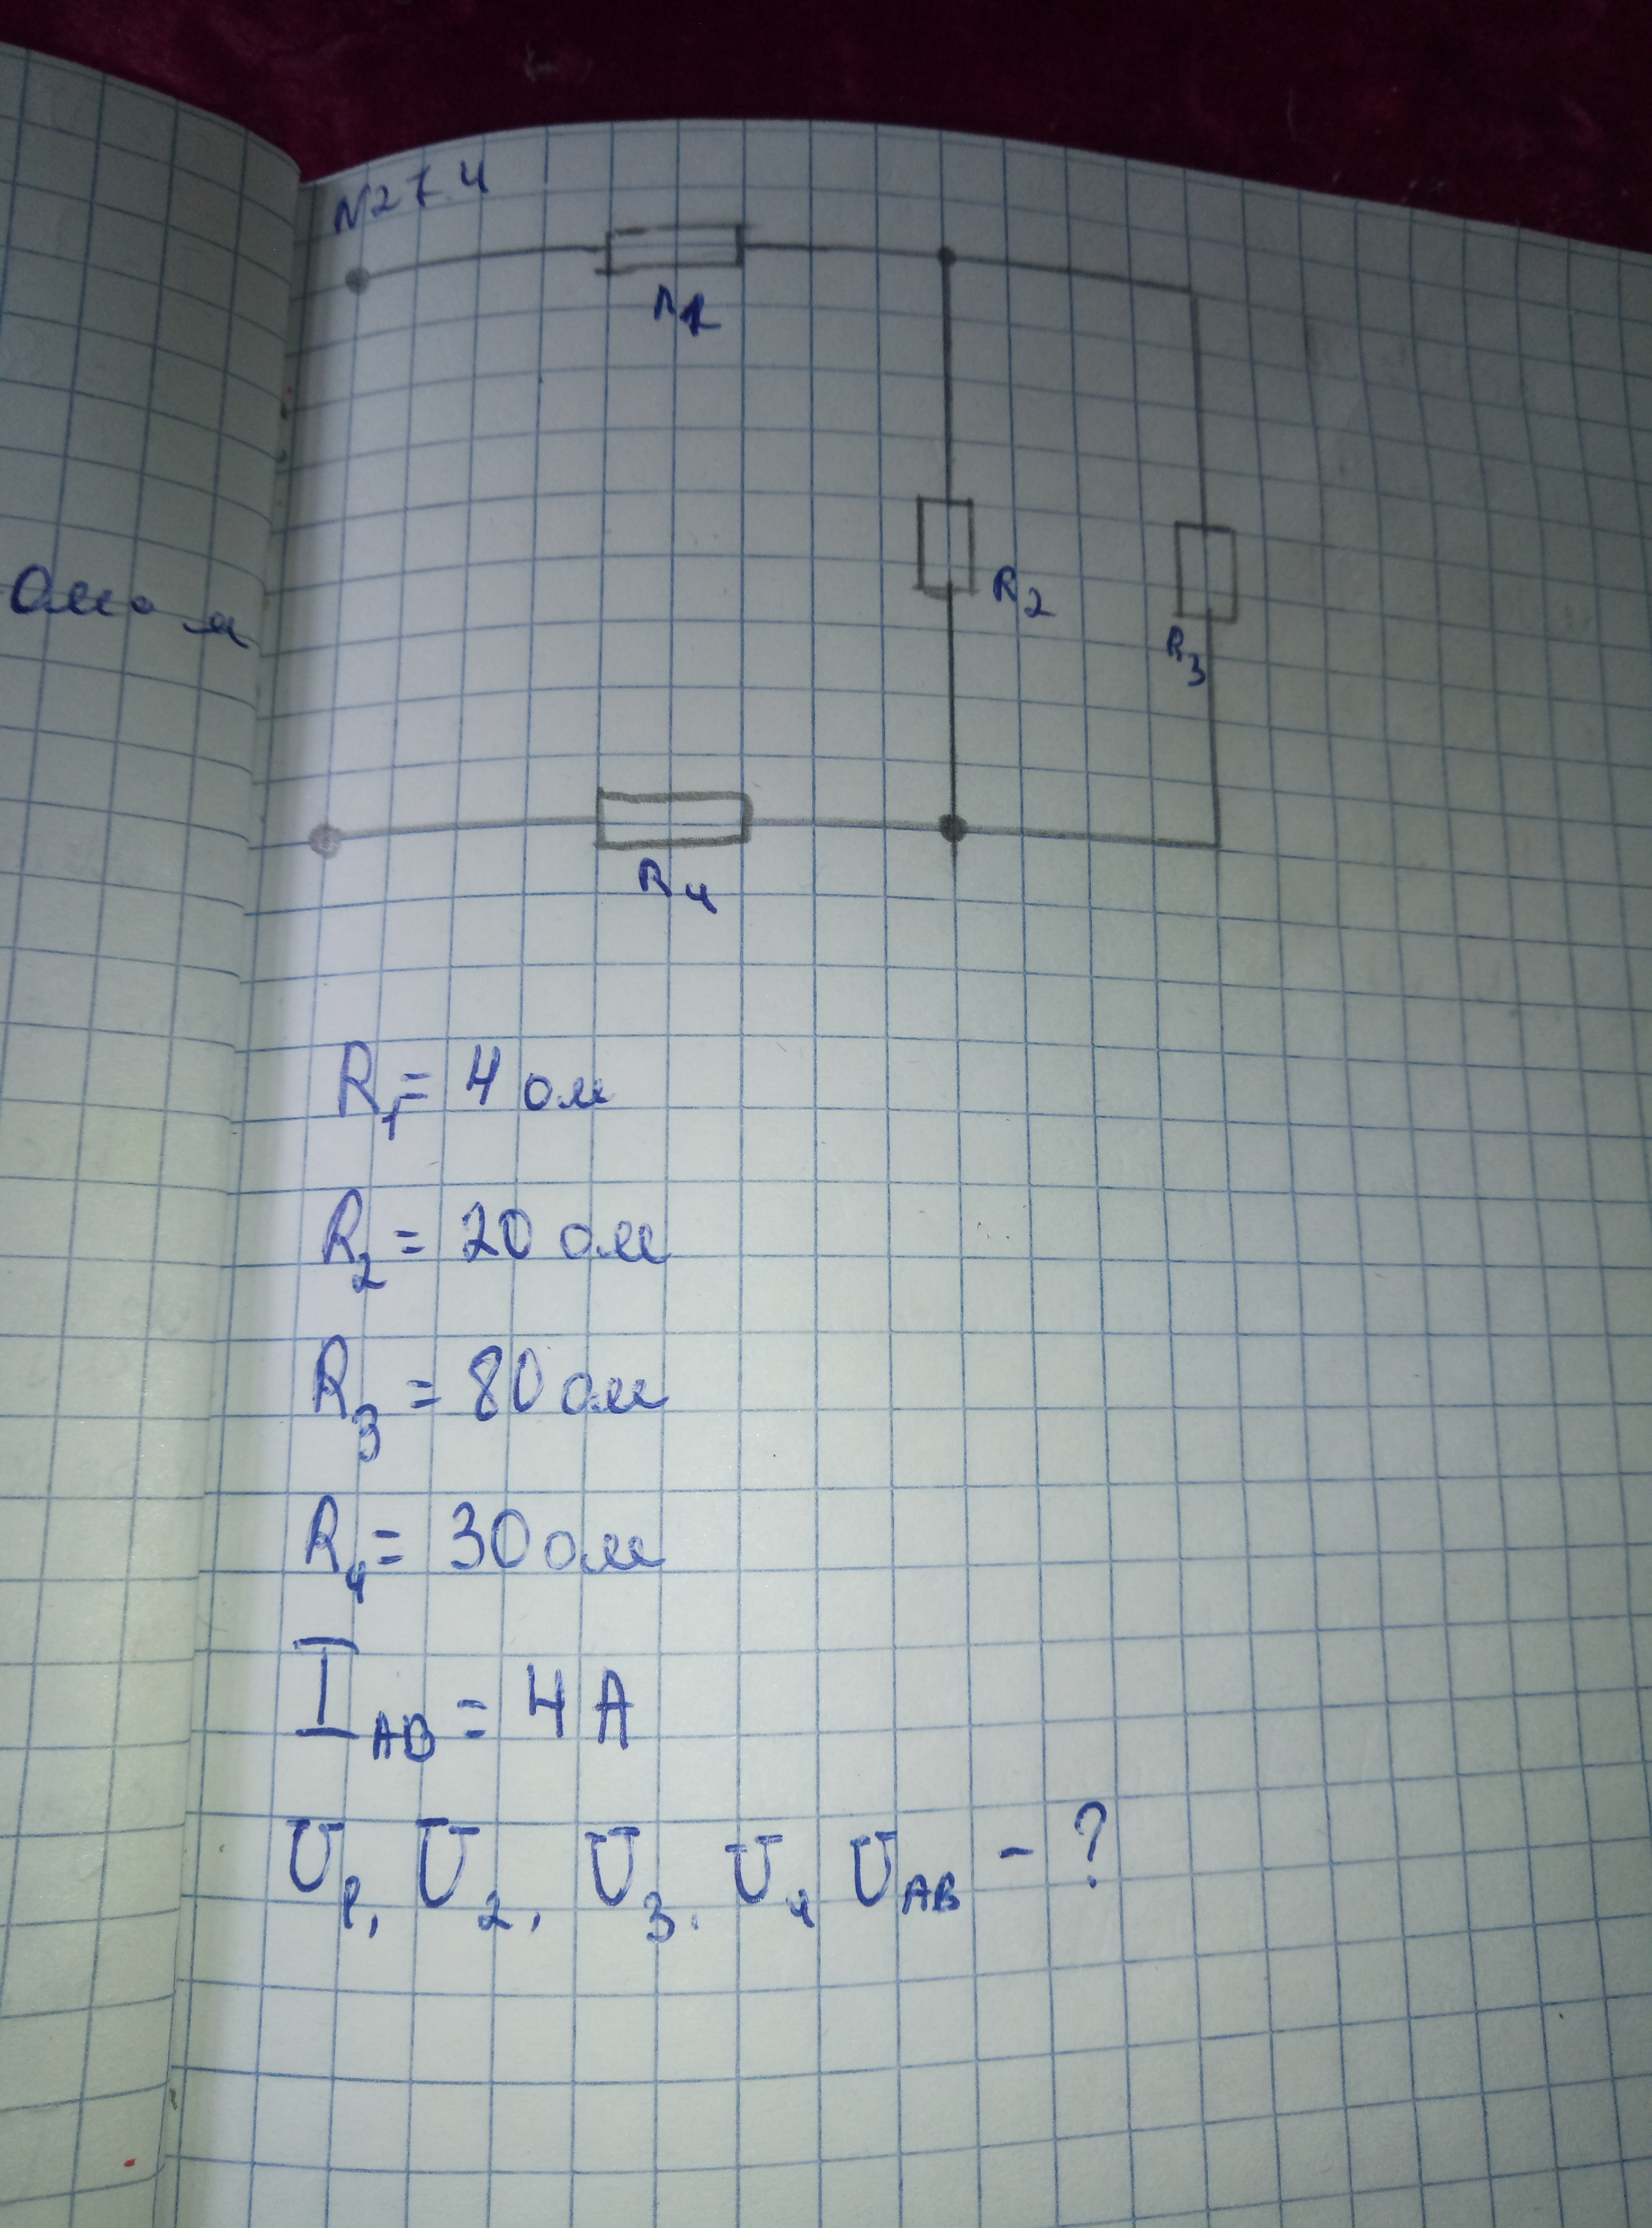 N27.4
R1
R2
R3
R4
R1 = 4 ом
R2 = 20 ом
R3 = 80 ом
R4 = 30 ом
IAB = 4 A
U1, U2, U3, U4 UAB - ?